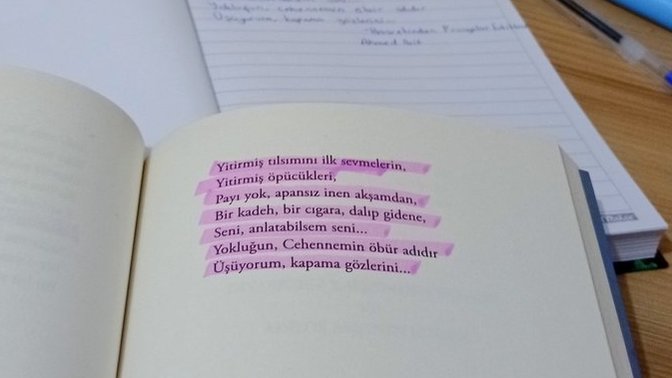 Yokluğun, Cehennemin öbür adıdır
Üşüyorum, kapama gözlerini...
Hasretinden Prangalar Eskittim
Ahmed Arif
Yitirmiş tılsımını ilk sevmelerin,
Yitirmiş öpücükleri,
Payı yok, apansız inen akşamdan,
Bir kadeh, bir cıgara, dalıp gidene,
Seni, anlatabilsem seni...
Yokluğun, Cehennemin öbür adıdır
Üşüyorum, kapama gözlerini...